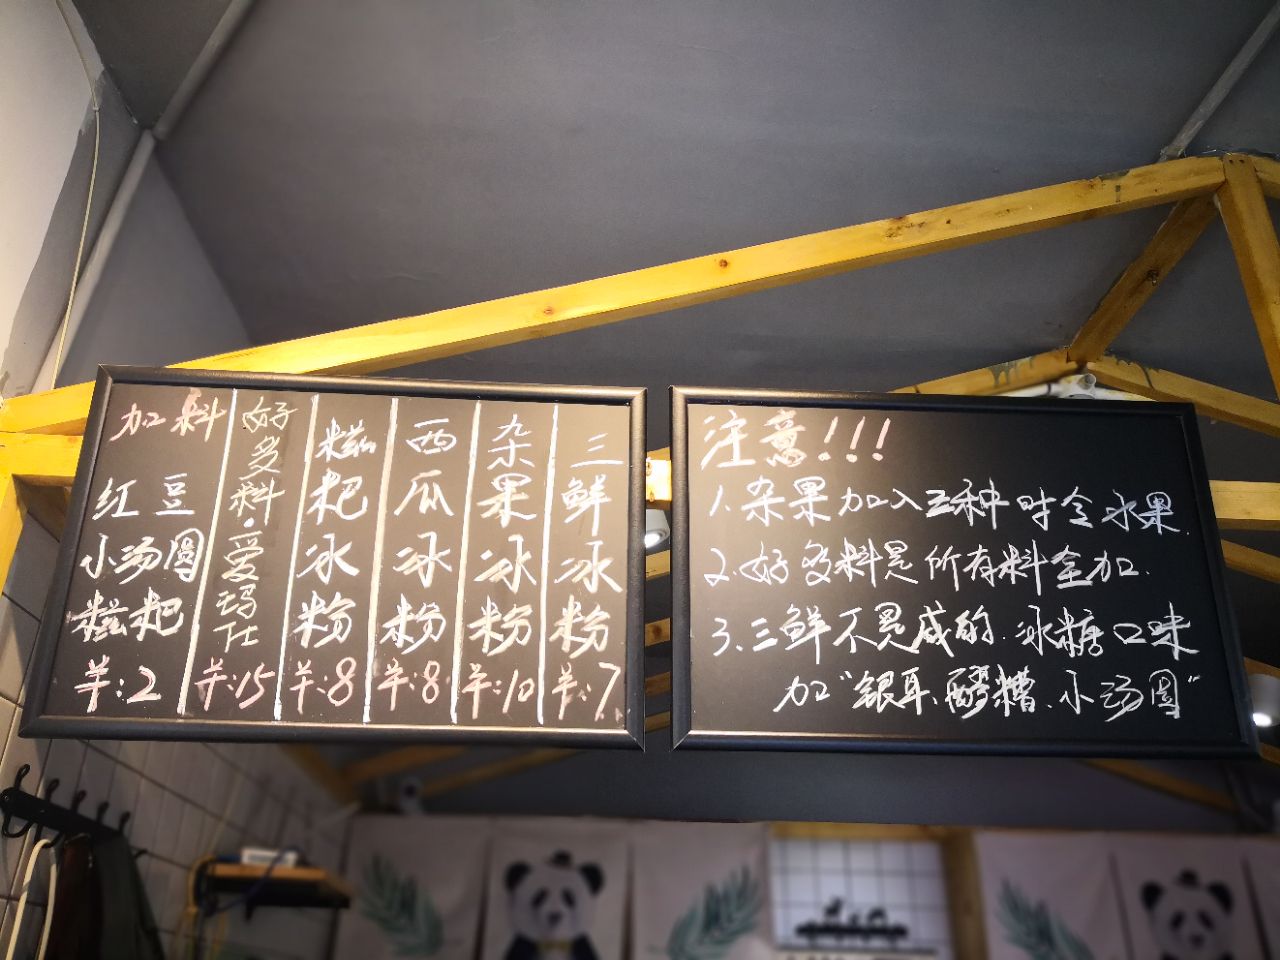 加料
红豆
小汤圆
糍粑
羊:2
好多料·爱玛仕
羊:15
糍粑冰粉
羊:8
西瓜冰粉
羊:8
杂果冰粉
羊:10
三鲜冰粉
羊:7
注意!!!
1.杂果加入五种时令水果.
2.好多料是所有料全加.
3.三鲜不是咸的.冰糖口味
加"银耳、醪糟、小汤圆"